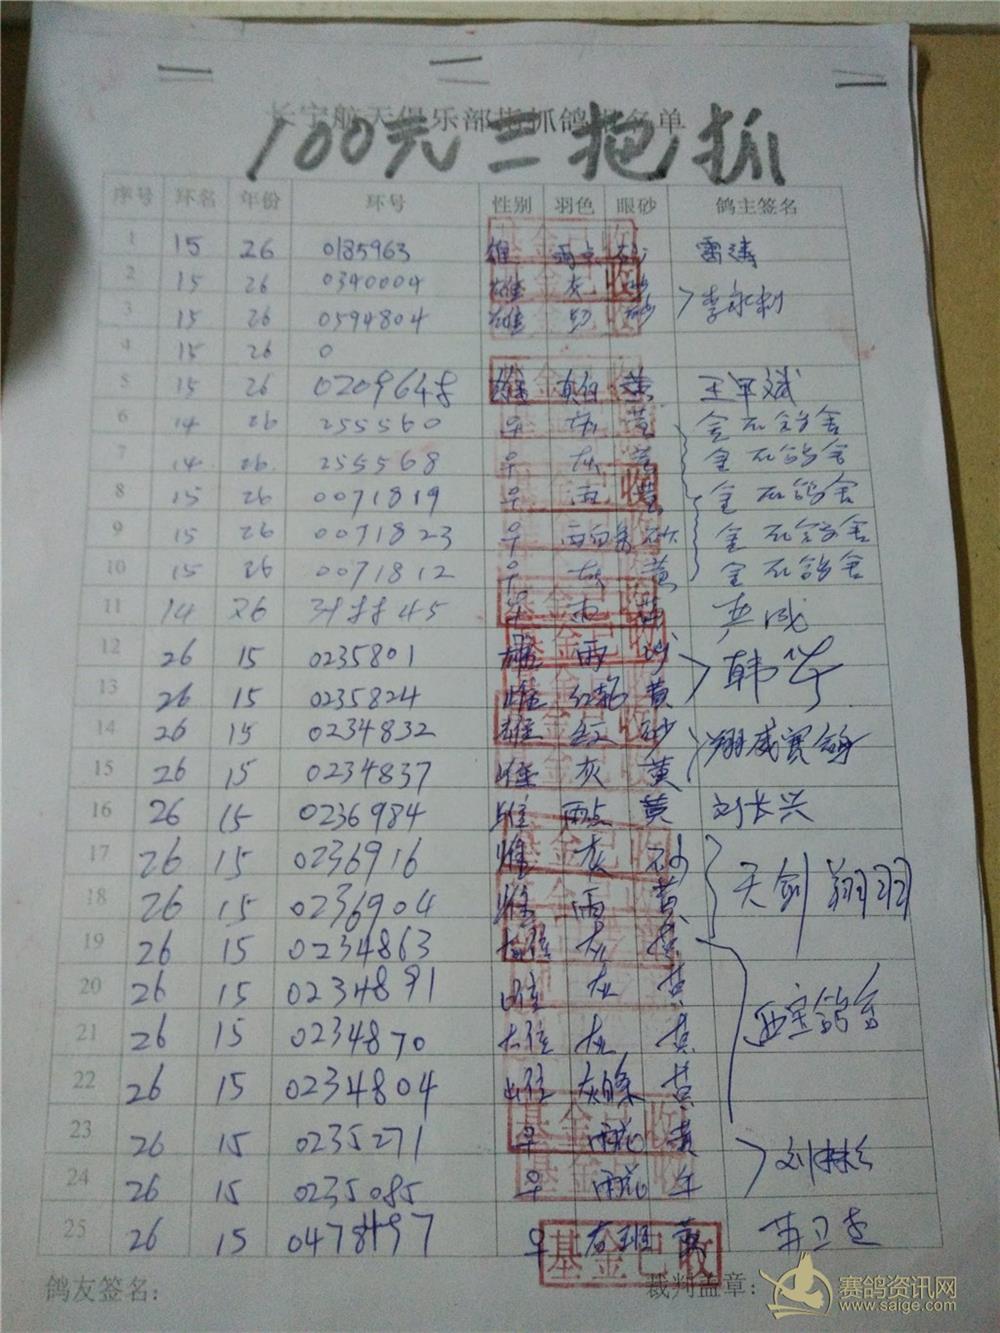 长宁航天俱乐部指抓鸽 名单
100元三把抓
序号 环名 年份 环号 性别 羽色 眼砂 鸽主签名
1 15 26 0185963 雄 雨点 砂 雷涛
2 15 26 0340004 雄 灰 砂 李永利
3 15 26 0594804 雄 砂
4 15 26 0
5 15 26 020964 黄 王军斌
6 14 26 255560 黄 金石鸽舍
7 14 26 255568 灰 黄 金石鸽舍
8 15 26 0071819 雨 黄 金石鸽舍
9 15 26 0071823 雨白条 砂 金石鸽舍
10 15 26 0071812 灰 黄 金石鸽舍
11 14 26 45 雨
12 26 15 0235801 雄 雨 砂 韩华
13 26 15 0235824 雌 红轮 黄
14 26 15 0234832 雄 红 砂 翔威赛鸽
15 26 15 0234837 雌 灰 黄
16 26 15 0236984 雌 雨点 黄 刘长兴
17 26 15 0236916 雌 灰 砂 天剑翔羽
18 26 15 0236904 雌 雨 黄
19 26 15 0234863 雄 灰 黄
20 26 15 0234891 雌 灰 黄 西宝鸽舍
21 26 15 0234870 雄 灰 黄
22 26 15 0234804 雌 灰白条 黄
23 26 15 0235271 雨花 黄
24 26 15 0235085 雨花 牛
25 26 15 黄
基金已收
鸽友签名: 裁判盖章:
赛鸽资讯网
www.saige.com